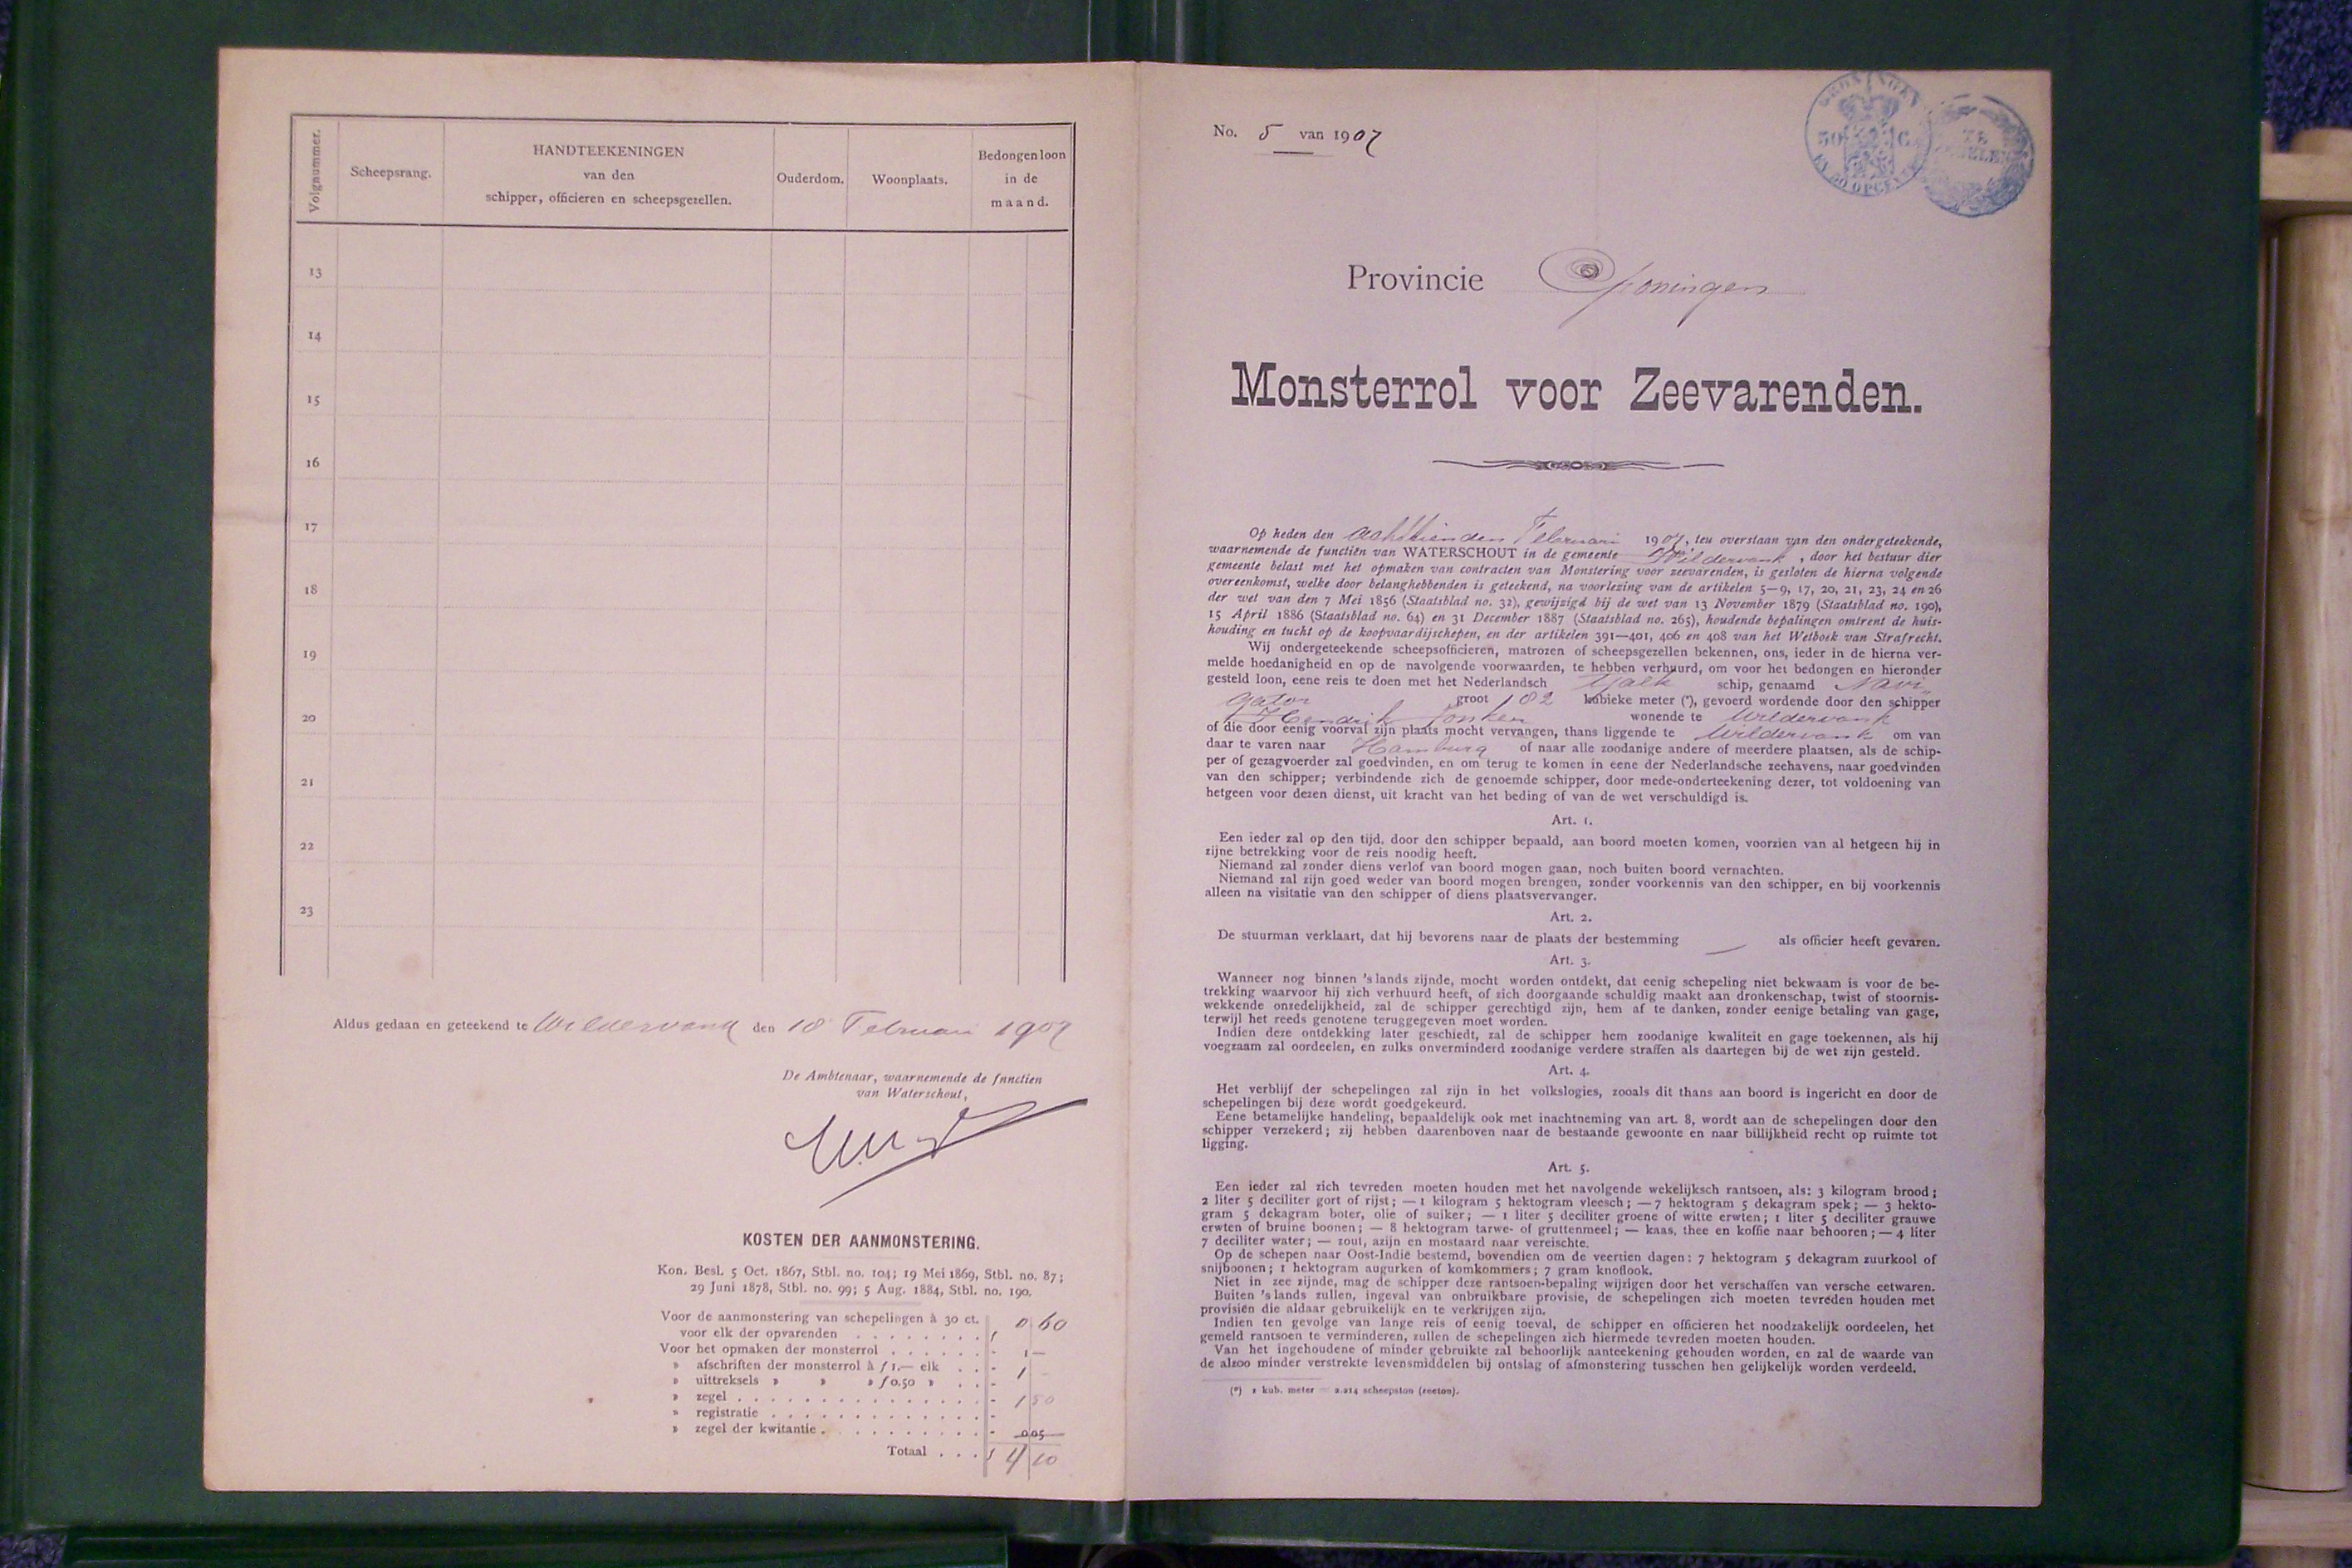 Volgnummer.
Scheepsrang.
HANDTEEKENINGEN
van den
schipper, officieren en scheepsgezellen.
Ouderdom.
Woonplaats.
Bedongen loon
in de
maand.
13
14
15
16
17
18
19
20
21
22
23
Aldus gedaan en geteekend te Wildervank den 18 Februari 1907
De Ambtenaar, waarnemende de fnnctien
van Waterschout,
KOSTEN DER AANMONSTERING.
Kon. Besl. 5 Oct. 1867, Stbl. no. 104; 19 Mei 1869, Stbl. no. 87;
29 Juni 1878, Stbl. no. 99; 5 Aug. 1884, Stbl. no. 190.
Voor de aanmonstering van schepelingen à 30 ct.
voor elk der opvarenden . . . . . . . . f 0 60
Voor het opmaken der monsterrol . . . . . . - 1 —
» afschriften der monsterrol à f 1.— elk . . - 1 -
» uittreksels » » » f 0.50 » . . -
» zegel . . . . . . . . . . . . . . . - 1 50
» registratie . . . . . . . . . . . . . -
» zegel der kwitantie . . . . . . . . . . - 0 05
Totaal . . . f 4 10
No. 5 van 1907
GRONINGEN
50 C.
EN 50 OPCENTEN
Provincie Groningen
Monsterrol voor Zeevarenden.
Op heden den achttienden Februari 1907, teu overstaan van den ondergeteekende,
waarnemende de functiën van WATERSCHOUT in de gemeente Wildervank, door het bestuur dier
gemeente belast met het opmaken van contracten van Monstering voor zeevarenden, is gesloten de hierna volgende
overeenkomst, welke door belanghebbenden is geteekend, na voorlezing van de artikelen 5—9, 17, 20, 21, 23, 24 en 26
der wet van den 7 Mei 1856 (Staatsblad no. 32), gewijzigd bij de wet van 13 November 1879 (Staatsblad no. 190),
15 April 1886 (Staatsblad no. 64) en 31 December 1887 (Staatsblad no. 265), houdende bepalingen omtrent de huis-
houding en tucht op de koopvaardijschepen, en der artikelen 391—401, 406 en 408 van het Wetboek van Strafrecht.
Wij ondergeteekende scheepsofficieren, matrozen of scheepsgezellen bekennen, ons, ieder in de hierna ver-
melde hoedanigheid en op de navolgende voorwaarden, te hebben verhuurd, om voor het bedongen en hieronder
gesteld loon, eene reis te doen met het Nederlandsch Tjalk schip, genaamd Navi„
gator groot 182 kubieke meter (*), gevoerd wordende door den schipper
Hendrik Jonker wonende te Wildervank
of die door eenig voorval zijn plaats mocht vervangen, thans liggende te Wildervank om van
daar te varen naar Hamburg of naar alle zoodanige andere of meerdere plaatsen, als de schip-
per of gezagvoerder zal goedvinden, en om terug te komen in eene der Nederlandsche zeehavens, naar goedvinden
van den schipper; verbindende zich de genoemde schipper, door mede-onderteekening dezer, tot voldoening van
hetgeen voor dezen dienst, uit kracht van het beding of van de wet verschuldigd is.
Art. 1.
Een ieder zal op den tijd, door den schipper bepaald, aan boord moeten komen, voorzien van al hetgeen hij in
zijne betrekking voor de reis noodig heeft.
Niemand zal zonder diens verlof van boord mogen gaan, noch buiten boord vernachten.
Niemand zal zijn goed weder van boord mogen brengen, zonder voorkennis van den schipper, en bij voorkennis
alleen na visitatie van den schipper of diens plaatsvervanger.
Art. 2.
De stuurman verklaart, dat hij bevorens naar de plaats der bestemming — als officier heeft gevaren.
Art. 3.
Wanneer nog binnen 's lands zijnde, mocht worden ontdekt, dat eenig schepeling niet bekwaam is voor de be-
trekking waarvoor hij zich verhuurd heeft, of zich doorgaande schuldig maakt aan dronkenschap, twist of stoornis-
wekkende onzedelijkheid, zal de schipper gerechtigd zijn, hem af te danken, zonder eenige betaling van gage,
terwijl het reeds genotene teruggegeven moet worden.
Indien deze ontdekking later geschiedt, zal de schipper hem zoodanige kwaliteit en gage toekennen, als hij
voegzaam zal oordeelen, en zulks onverminderd zoodanige verdere straffen als daartegen bij de wet zijn gesteld.
Art. 4.
Het verblijf der schepelingen zal zijn in het volkslogies, zooals dit thans aan boord is ingericht en door de
schepelingen bij deze wordt goedgekeurd.
Eene betamelijke handeling, bepaaldelijk ook met inachtneming van art. 8, wordt aan de schepelingen door den
schipper verzekerd; zij hebben daarenboven naar de bestaande gewoonte en naar billijkheid recht op ruimte tot
ligging.
Art. 5.
Een ieder zal zich tevreden moeten houden met het navolgende wekelijksch rantsoen, als: 3 kilogram brood;
2 liter 5 deciliter gort of rijst; — 1 kilogram 5 hektogram vleesch; — 7 hektogram 5 dekagram spek; — 3 hekto-
gram 5 dekagram boter, olie of suiker; — 1 liter 5 deciliter groene of witte erwten; 1 liter 5 deciliter grauwe
erwten of bruine boonen; — 8 hektogram tarwe- of gruttenmeel; — kaas, thee en koffie naar behooren; — 4 liter
7 deciliter water; — zout, azijn en mostaard naar vereischte.
Op de schepen naar Oost-Indië bestemd, bovendien om de veertien dagen: 7 hektogram 5 dekagram zuurkool of
snijboonen; 1 hektogram augurken of komkommers; 7 gram knoflook.
Niet in zee zijnde, mag de schipper deze rantsoen-bepaling wijzigen door het verschaffen van versche eetwaren.
Buiten 's lands zullen, ingeval van onbruikbare provisie, de schepelingen zich moeten tevreden houden met
provisiën die aldaar gebruikelijk en te verkrijgen zijn.
Indien ten gevolge van lange reis of eenig toeval, de schipper en officieren het noodzakelijk oordeelen, het
gemeld rantsoen te verminderen, zullen de schepelingen zich hiermede tevreden moeten houden.
Van het ingehoudene of minder gebruikte zal behoorlijk aanteekening gehouden worden, en zal de waarde van
de alzoo minder verstrekte levensmiddelen bij ontslag of afmonstering tusschen hen gelijkelijk worden verdeeld.
(*) 1 kub. meter = 2.214 scheepston (zeeton).